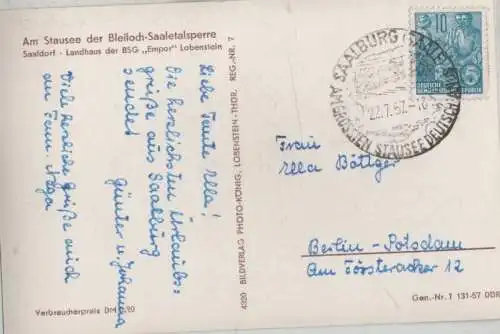 Am Stausee der Bleiloch-Saaletalsperre
Saaldorf - Landhaus der BSG „Empor" Lobenstein
Liebe Tante Ella!
Die herzlichsten Urlaubs=
grüße aus Saalburg
sendet
Günter u. Johanna
Viele herzliche Grüße auch
an Fam.
4320 BILDVERLAG PHOTO-KÖNIG, LOBENSTEIN-THÜR. REG.-NR. 7
SAALBURG (SAALE)
22.7.57
AM GROSSEN STAUSEE DEUTSCHLANDS
10
DEUTSCHE
Frau
Ella Böttger
Berlin - Potsdam
Am Försteracker 12
Verbraucherpreis DM 0,20
Gen.-Nr. I 131-57 DDR